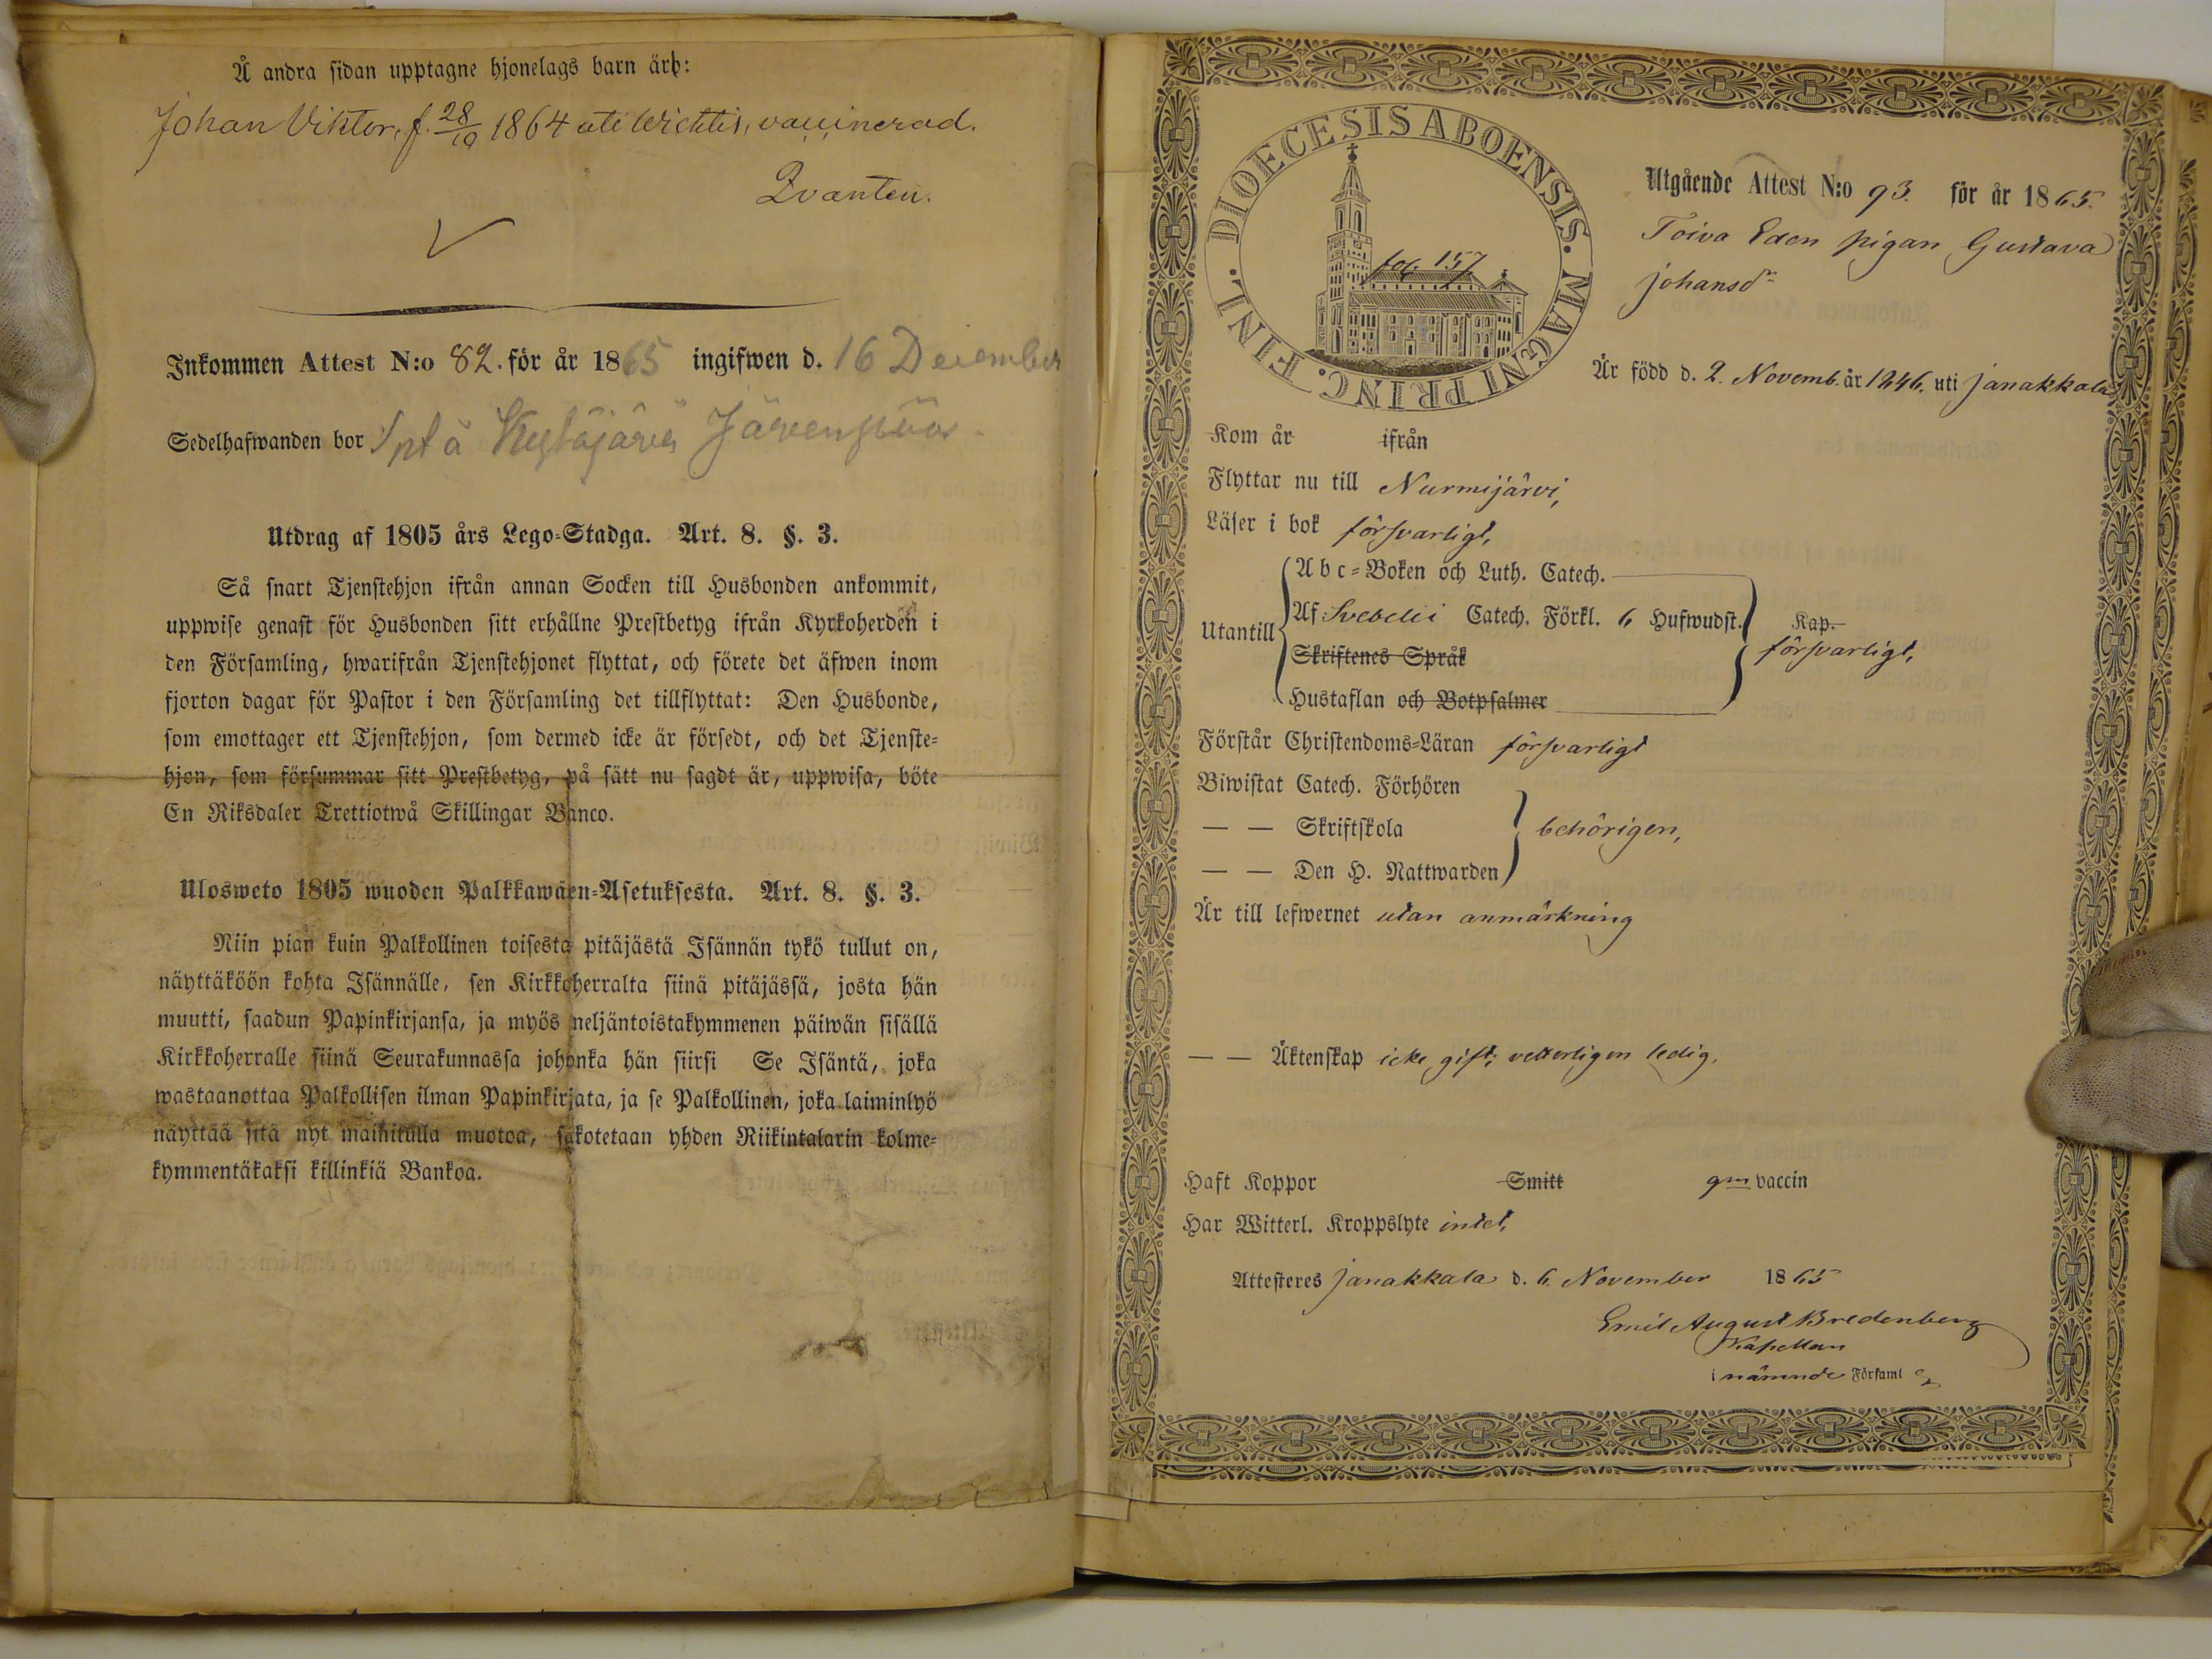 Å andra sidan upptagne hjonelags barn är:
Johan Viktor, f. 28/10 1864 uti Wichtis, vaccinerad.
Qvanten.
Inkommen Attest N:o 82. för år 1865 ingifwen d. 16 December
Sedelhafwanden bor
Utdrag af 1805 års Lego-Stadga. Art. 8. §. 3.
Så snart Tjenstehjon ifrån annan Socken till Husbonden ankommit,
uppwise genast för Husbonden sitt erhållne Prestbetyg ifrån Kyrkoherden i
den Församling, hwarifrån Tjenstehjonet flyttat, och förete det äfwen inom
fjorton dagar för Pastor i den Församling det tillflyttat: Den Husbonde,
som emottager ett Tjenstehjon, som dermed icke är försedt, och det Tjenste-
hjon, som försummar sitt Prestbetyg, på sätt nu sagdt är, uppwisa, böte
En Riksdaler Trettiotwå Skillingar Banco.
Ulosweto 1805 wuoden Palkkawäen-Asetuksesta. Art. 8. §. 3.
Niin pian kuin Palkollinen toisesta pitäjästä Isännän tykö tullut on,
näyttäköön kohta Isännälle, sen Kirkkoherralta siinä pitäjässä, josta hän
muutti, saadun Papinkirjansa, ja myös neljäntoistakymmenen päiwän sisällä
Kirkkoherralle siinä Seurakunnassa johonka hän siirsi Se Isäntä, joka
wastaanottaa Palkollisen ilman Papinkirjata, ja se Palkollinen, joka laiminlyö
näyttää sitä nyt mainitulla muotoa, sakotetaan yhden Riikintalarin kolme-
kymmentäkaksi killinkiä Bankoa.
DIOECESIS ABOENSIS. MAGNI PRINC. FINL.
fol. 157
Utgående Attest N:o 93. för år 1865.
Toiva Eden pigan Gustava
Johansdr
Är född d. 2. Novemb. år 1846. uti Janakkala
Kom år ifrån
Flyttar nu till Nurmijärvi,
Läser i bok försvarligt,
Utantill
Abc-Boken och Luth. Catech.
Af Svebelii Catech. Förkl. 6 Hufwudst. Kap.
Skriftenes Språk försvarligt,
Hustaflan och Botpsalmer
Förstår Christendoms-Läran försvarligt
Biwistat Catech. Förhören
— — Skriftskola behörigen,
— — Den H. Nattwarden
Är till lefwernet utan anmärkning
— — Äktenskap icke gift; vetterligen ledig.
Haft Koppor Smitt gm vaccin
Har Witterl. Kroppslyte intet,
Attesteres Janakkala d. 6 November 1865
Emil August Bredenberg
Kapellan
i nämnde Församl